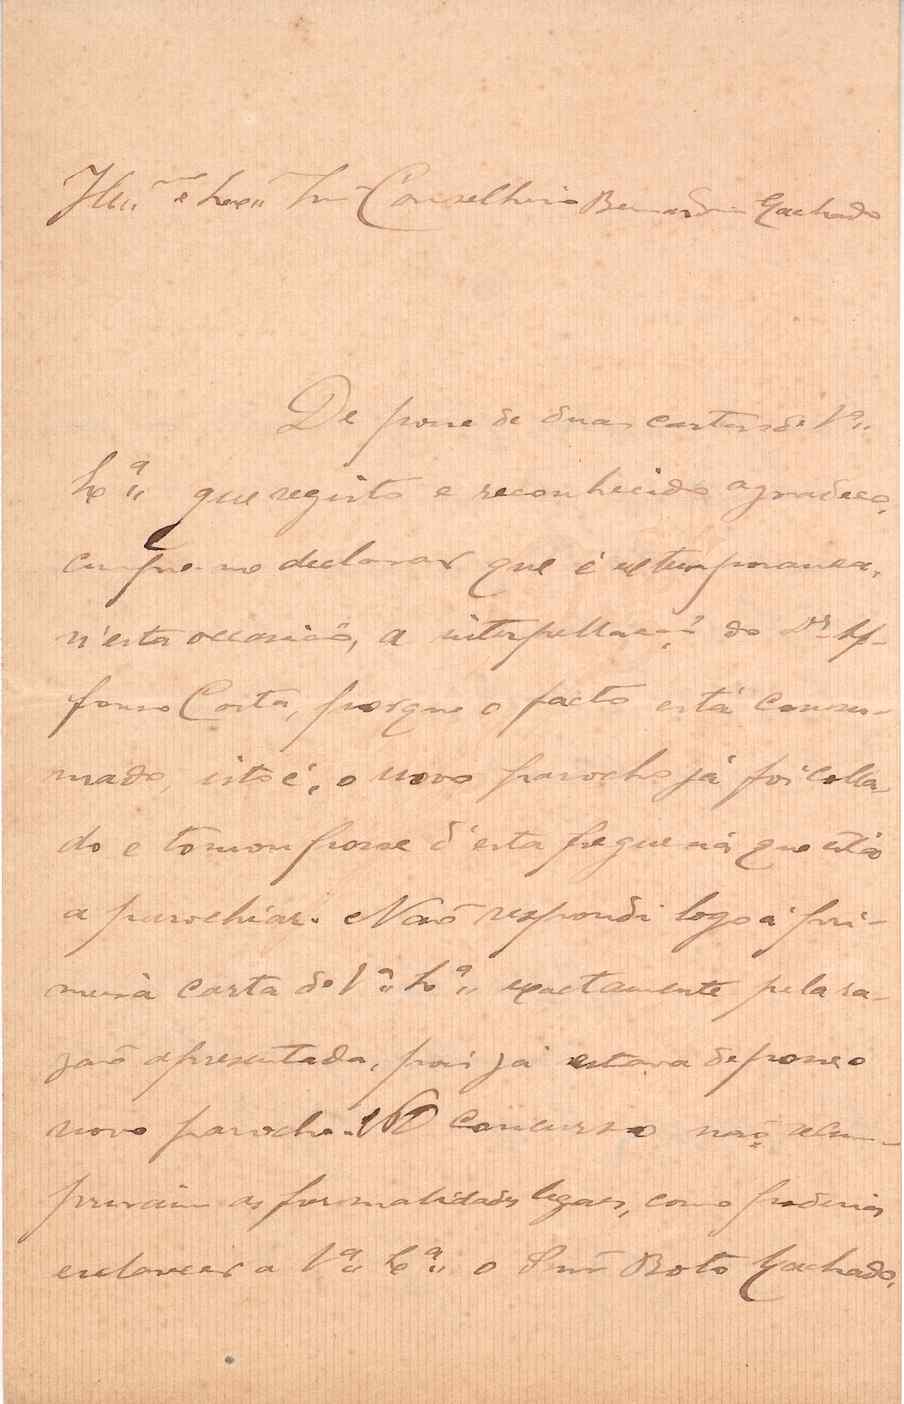 Illm.º e Exm.º Snr. Conselheiro Bernardino Machado
De posse de duas cartas de V.ª
Ex.ª que registo e reconhecido agradeço,
cumpre-me declarar que é extemporanea,
n'esta occasião, a interpellação do Dr. Af-
fonso Costa, porque o facto está consum-
mado, isto é, o novo parocho já foi colla-
do e tomou posse d'esta freguesia que está
a parochiar. Não respondi logo á pri-
meira carta de V.ª Ex.ª exactamente pela ra-
zão apresentada, pois já estava de posse o
novo parocho. No concurso não se cum-
priram as formalidades legaes, como poderia
esclarecer a V.ª Ex.ª o Snr. Boto Machado,